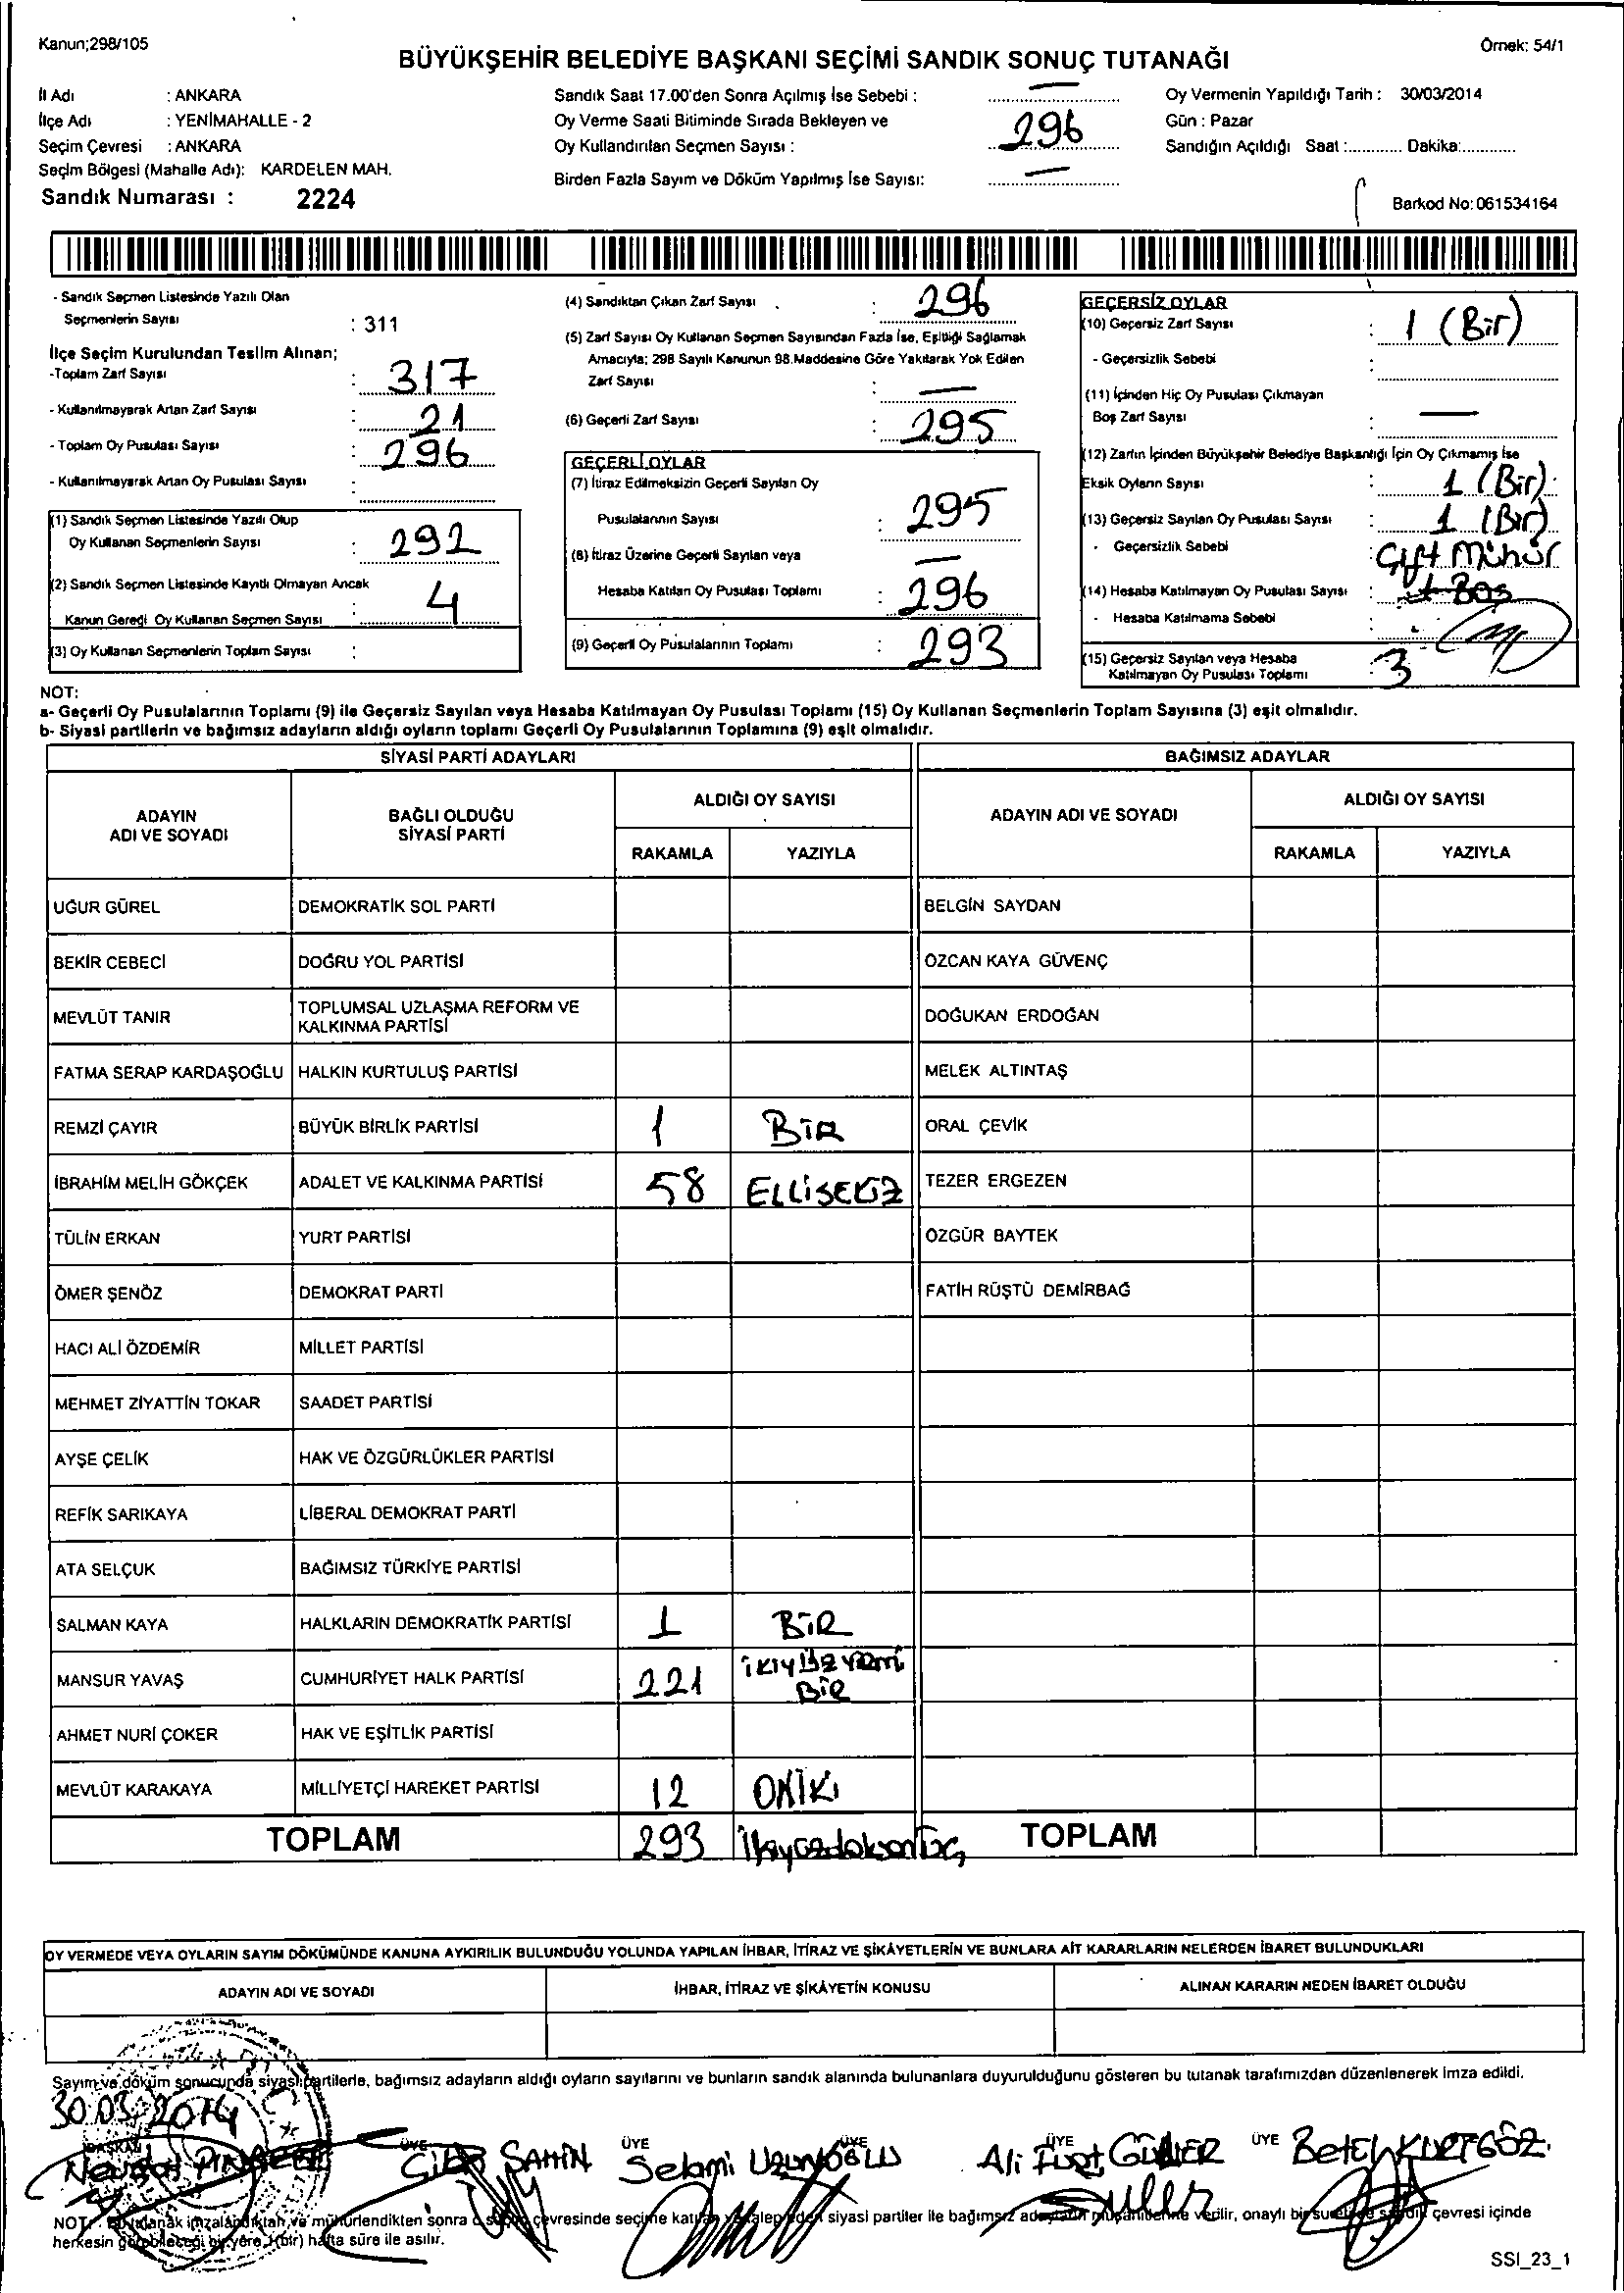 Kanun;298/105
Örnek: 54/1
BÜYÜKŞEHİR BELEDİYE BAŞKANI SEÇİMİ SANDIK SONUÇ TUTANAĞI
İl Adı : ANKARA
İlçe Adı : YENİMAHALLE - 2
Seçim Çevresi : ANKARA
Seçim Bölgesi (Mahalle Adı): KARDELEN MAH.
Sandık Numarası : 2224
Sandık Saat 17.00'den Sonra Açılmış İse Sebebi : —
Oy Verme Saati Bitiminde Sırada Bekleyen ve
Oy Kullandırılan Seçmen Sayısı : 296
Birden Fazla Sayım ve Döküm Yapılmış İse Sayısı: —
Oy Vermenin Yapıldığı Tarih : 30/03/2014
Gün : Pazar
Sandığın Açıldığı Saat :............ Dakika:............
Barkod No: 061534164
- Sandık Seçmen Listesinde Yazılı Olan
Seçmenlerin Sayısı : 311
İlçe Seçim Kurulundan Teslim Alınan;
-Toplam Zarf Sayısı : 317
- Kullanılmayarak Artan Zarf Sayısı : 21
- Toplam Oy Pusulası Sayısı : 296
- Kullanılmayarak Artan Oy Pusulası Sayısı :
(1) Sandık Seçmen Listesinde Yazılı Olup
Oy Kullanan Seçmenlerin Sayısı : 292
(2) Sandık Seçmen Listesinde Kayıtlı Olmayan Ancak
Kanun Gereği Oy Kullanan Seçmen Sayısı : 4
(3) Oy Kullanan Seçmenlerin Toplam Sayısı :
(4) Sandıktan Çıkan Zarf Sayısı : 296
(5) Zarf Sayısı Oy Kullanan Seçmen Sayısından Fazla İse, Eşitliği Sağlamak
Amacıyla; 298 Sayılı Kanunun 98.Maddesine Göre Yakılarak Yok Edilen
Zarf Sayısı : —
(6) Geçerli Zarf Sayısı : 295
GEÇERLİ OYLAR
(7) İtiraz Edilmeksizin Geçerli Sayılan Oy
Pusulalarının Sayısı : 295
(8) İtiraz Üzerine Geçerli Sayılan veya —
Hesaba Katılan Oy Pusulası Toplamı : 296
(9) Geçerli Oy Pusulalarının Toplamı : 293
GEÇERSİZ OYLAR
(10) Geçersiz Zarf Sayısı : 1 (Bir)
- Geçersizlik Sebebi :
(11) İçinden Hiç Oy Pusulası Çıkmayan
Boş Zarf Sayısı : —
(12) Zarfın İçinden Büyükşehir Belediye Başkanlığı İçin Oy Çıkmamış İse
Eksik Oyların Sayısı : 1 (Bir)
(13) Geçersiz Sayılan Oy Pusulası Sayısı : 1 (Bir)
- Geçersizlik Sebebi : Çift Mühür
(14) Hesaba Katılmayan Oy Pusulası Sayısı : + Boş
- Hesaba Katılmama Sebebi :
(15) Geçersiz Sayılan veya Hesaba
Katılmayan Oy Pusulası Toplamı : 3
NOT:
a- Geçerli Oy Pusulalarının Toplamı (9) ile Geçersiz Sayılan veya Hesaba Katılmayan Oy Pusulası Toplamı (15) Oy Kullanan Seçmenlerin Toplam Sayısına (3) eşit olmalıdır.
b- Siyasi partilerin ve bağımsız adayların aldığı oyların toplamı Geçerli Oy Pusulalarının Toplamına (9) eşit olmalıdır.
SİYASİ PARTİ ADAYLARI BAĞIMSIZ ADAYLAR
ADAYIN ADI VE SOYADI BAĞLI OLDUĞU SİYASİ PARTİ ALDIĞI OY SAYISI ADAYIN ADI VE SOYADI ALDIĞI OY SAYISI
RAKAMLA YAZIYLA RAKAMLA YAZIYLA
UĞUR GÜREL DEMOKRATİK SOL PARTİ BELGİN SAYDAN
BEKİR CEBECİ DOĞRU YOL PARTİSİ ÖZCAN KAYA GÜVENÇ
MEVLÜT TANIR TOPLUMSAL UZLAŞMA REFORM VE KALKINMA PARTİSİ DOĞUKAN ERDOĞAN
FATMA SERAP KARDAŞOĞLU HALKIN KURTULUŞ PARTİSİ MELEK ALTINTAŞ
REMZİ ÇAYIR BÜYÜK BİRLİK PARTİSİ 1 BİR ORAL ÇEVİK
İBRAHİM MELİH GÖKÇEK ADALET VE KALKINMA PARTİSİ 58 ELLİSEKİZ TEZER ERGEZEN
TÜLİN ERKAN YURT PARTİSİ ÖZGÜR BAYTEK
ÖMER ŞENÖZ DEMOKRAT PARTİ FATİH RÜŞTÜ DEMİRBAĞ
HACI ALİ ÖZDEMİR MİLLET PARTİSİ
MEHMET ZİYATTİN TOKAR SAADET PARTİSİ
AYŞE ÇELİK HAK VE ÖZGÜRLÜKLER PARTİSİ
REFİK SARIKAYA LİBERAL DEMOKRAT PARTİ
ATA SELÇUK BAĞIMSIZ TÜRKİYE PARTİSİ
SALMAN KAYA HALKLARIN DEMOKRATİK PARTİSİ 1 BİR
MANSUR YAVAŞ CUMHURİYET HALK PARTİSİ 221 İKİYÜZ YİRMİ BİR
AHMET NURİ ÇOKER HAK VE EŞİTLİK PARTİSİ
MEVLÜT KARAKAYA MİLLİYETÇİ HAREKET PARTİSİ 12 ONİKİ
TOPLAM 293 İkiyüzdoksanüç TOPLAM
OY VERMEDE VEYA OYLARIN SAYIM DÖKÜMÜNDE KANUNA AYKIRILIK BULUNDUĞU YOLUNDA YAPILAN İHBAR, İTİRAZ VE ŞİKÂYETLERİN VE BUNLARA AİT KARARLARIN NELERDEN İBARET BULUNDUKLARI
ADAYIN ADI VE SOYADI İHBAR, İTİRAZ VE ŞİKÂYETİN KONUSU ALINAN KARARIN NEDEN İBARET OLDUĞU
Sayım ve döküm sonucunda siyasi partilerle, bağımsız adayların aldığı oyların sayılarını ve bunların sandık alanında bulunanlara duyurulduğunu gösteren bu tutanak tarafımızdan düzenlenerek imza edildi.
30.03.2014
BAŞKAN ÜYE ÜYE ÜYE ÜYE ÜYE
ŞAHİN Selami Ali GÜLER
NOT: Bu tutanak imzalandıktan ve mühürlendikten sonra çevresinde seçime katılan siyasi partiler ile bağımsız adayların müşahitlerine verilir, onaylı bir çevresi içinde
herkesin görebileceği bir yere 1(bir) hafta süre ile asılır.
SSI_23_1